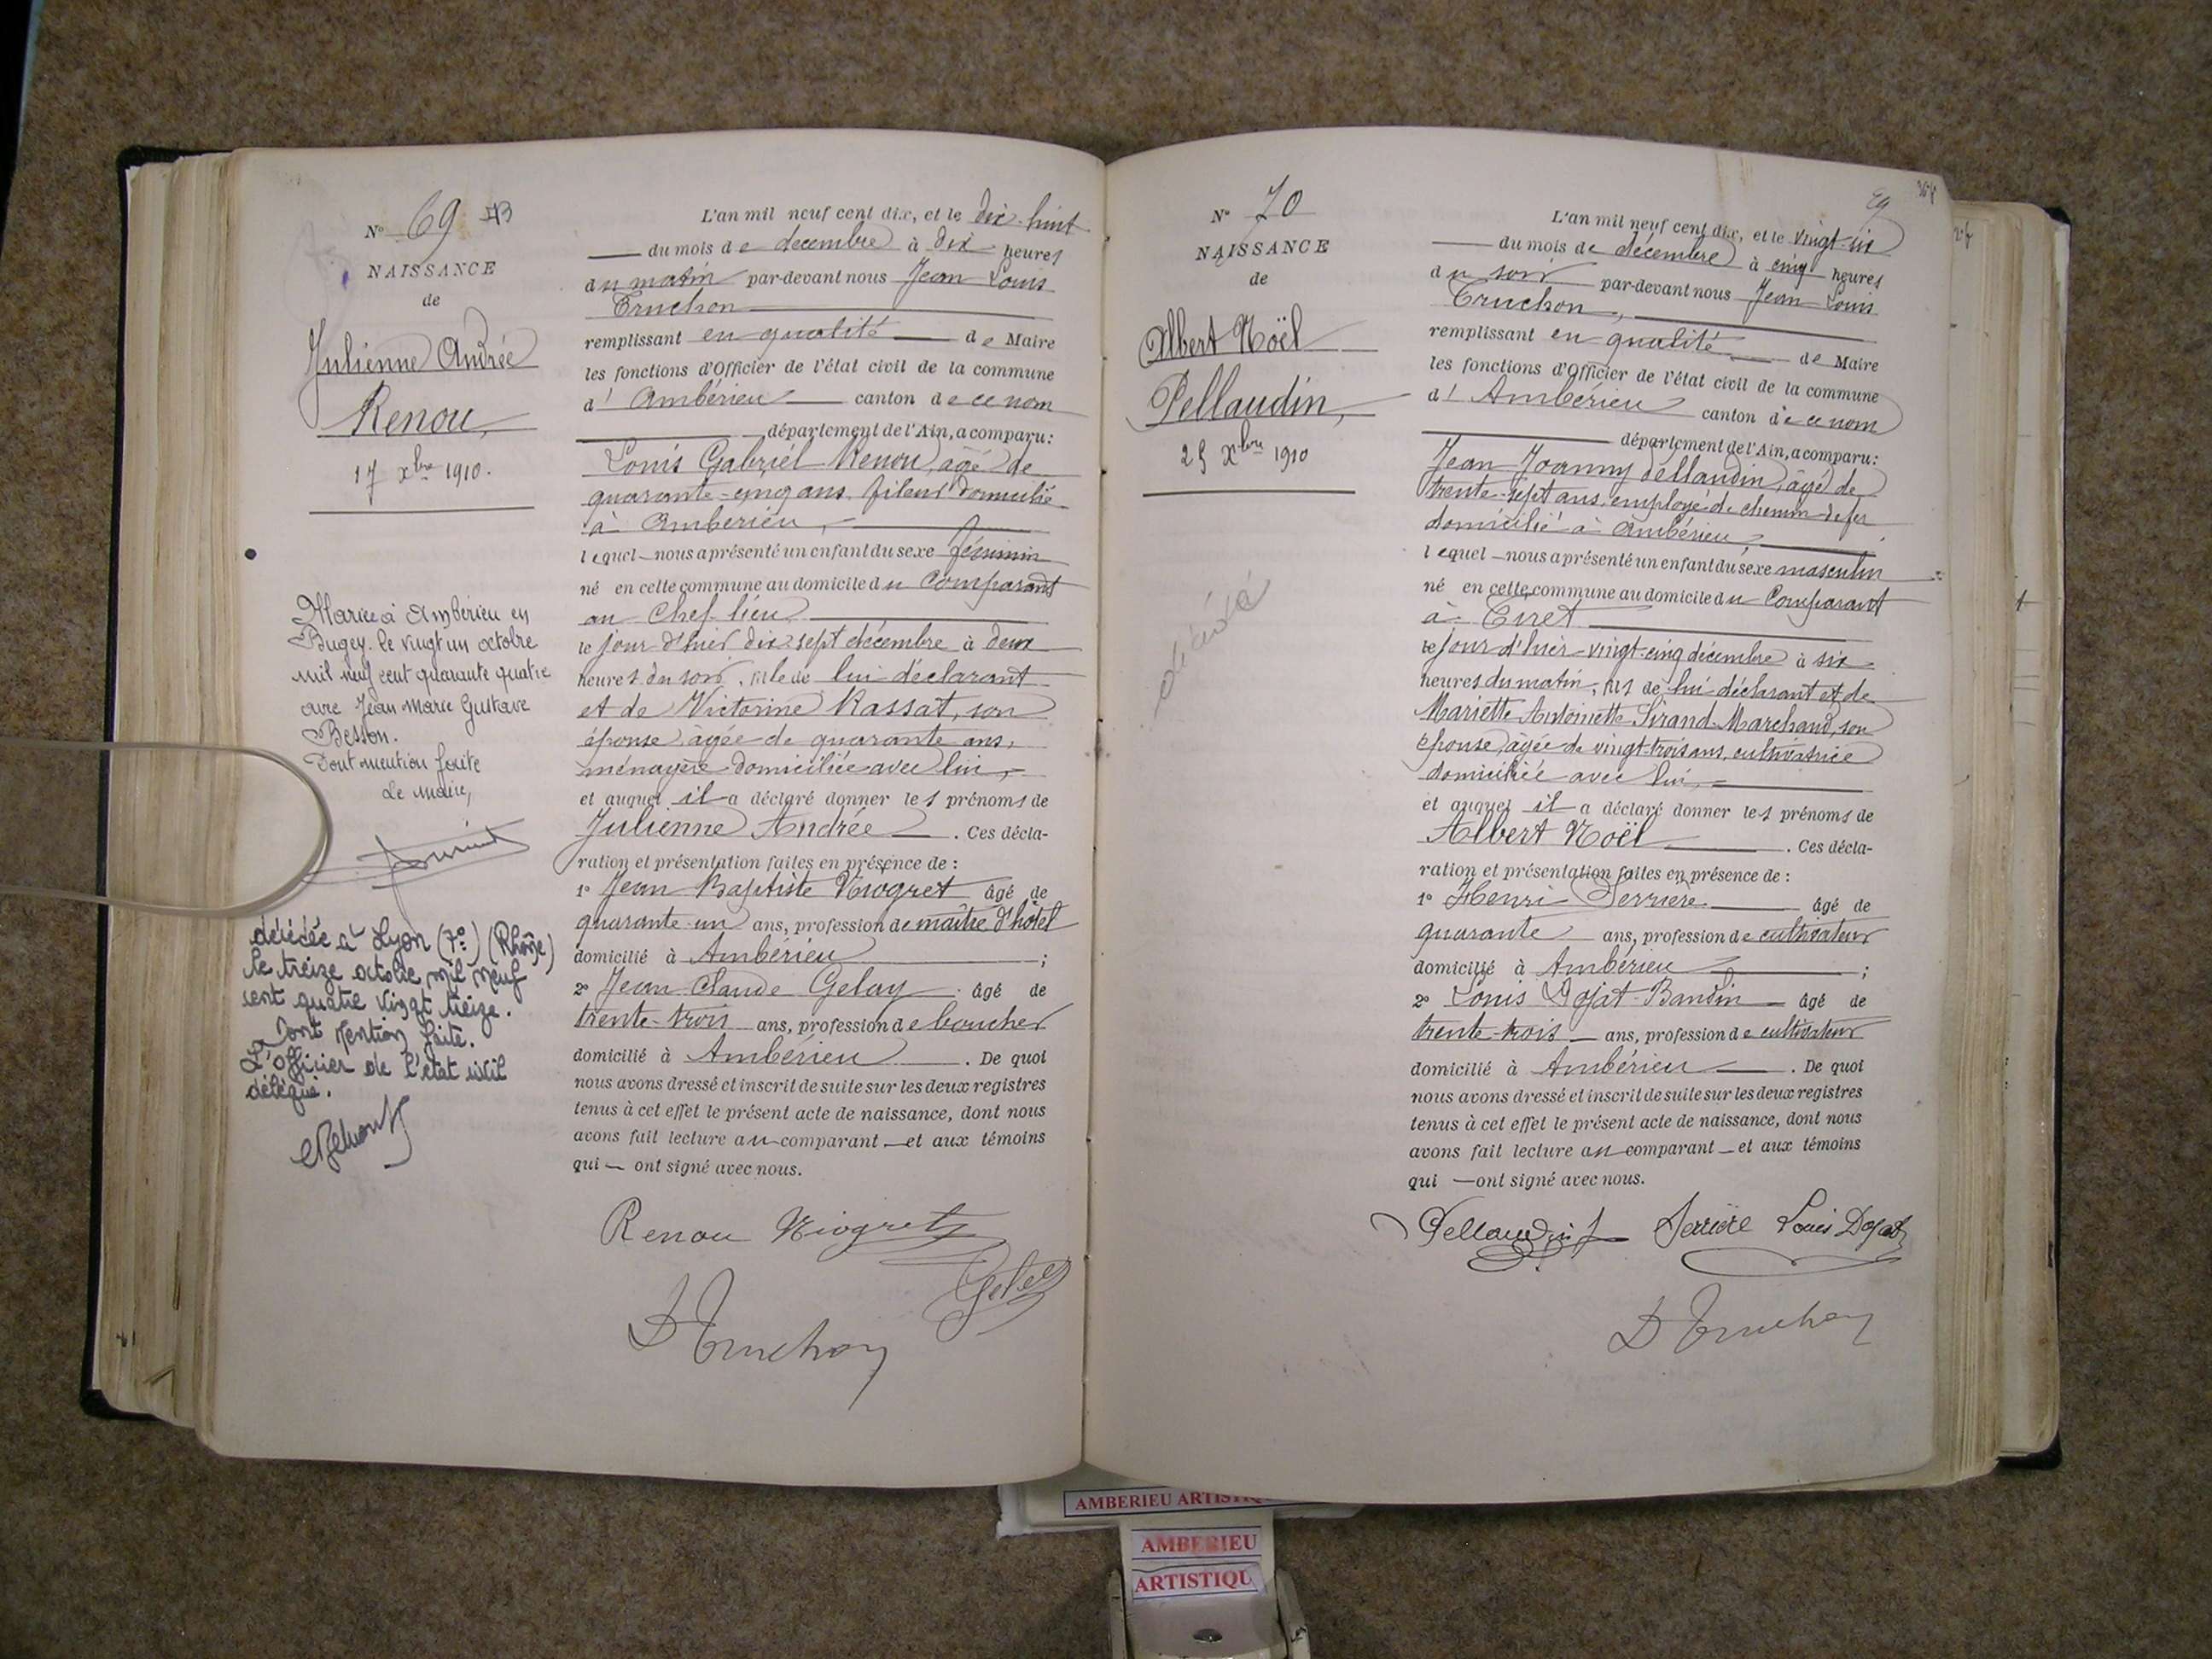 N° 69
NAISSANCE
de
Julienne Andrée
Renou,
17 Xbre 1910.
Mariée à Ambérieu en
Bugey. le vingt un octobre
mil neuf cent quarante quatre
avec Jean Marie Gustave
Besson.
Dont mention faite
Le Maire,
décédée à Lyon (7e) (Rhône)
le treize octobre mil neuf
cent quatre vingt treize.
Dont mention faite.
L'Officier de l'état civil
délégué.
L'an mil neuf cent dix, et le dix-huit
du mois de décembre à dix heures
du matin par-devant nous Jean Louis
Truchon
remplissant en qualité de Maire
les fonctions d'Officier de l'état civil de la commune
d'Ambérieu canton de ce nom
département de l'Ain, a comparu:
Louis Gabriel Renou, âgé de
quarante-cinq ans, fileur domicilié
à Ambérieu,
lequel nous a présenté un enfant du sexe féminin
né en cette commune au domicile du Comparant
au Chef lieu
le jour d'hier dix-sept décembre à deux
heures du soir, fille de lui déclarant
et de Victorine Rassat, son
épouse, âgée de quarante ans,
ménagère domiciliée avec lui,
et auquel il a déclaré donner les prénoms de
Julienne Andrée. Ces décla-
ration et présentation faites en présence de :
1° Jean Baptiste Niogret âgé de
quarante-un ans, profession de maître d'hôtel
domicilié à Ambérieu ;
2° Jean Claude Gelay âgé de
trente-trois ans, profession de boucher
domicilié à Ambérieu. De quoi
nous avons dressé et inscrit de suite sur les deux registres
tenus à cet effet le présent acte de naissance, dont nous
avons fait lecture au comparant et aux témoins
qui ont signé avec nous.
Renou Niogret
Gelay
Truchon
N° 70
NAISSANCE
de
Albert Noël
Pellaudin,
25 Xbre 1910
29
L'an mil neuf cent dix, et le vingt-six
du mois de décembre à cinq heures
du soir par-devant nous Jean Louis
Truchon,
remplissant en qualité de Maire
les fonctions d'Officier de l'état civil de la commune
d'Ambérieu canton de ce nom
département de l'Ain, a comparu:
Jean Joanny Pellaudin, âgé de
trente-sept ans, employé de chemin de fer
domicilié à Ambérieu,
lequel nous a présenté un enfant du sexe masculin
né en cette commune au domicile du Comparant
à Tiret
le jour d'hier vingt-cinq décembre à six
heures du matin, fils de lui déclarant et de
Mariette Antoinette Sirand-Marchand, son
épouse, âgée de vingt-trois ans, cultivatrice
domiciliée avec lui,
et auquel il a déclaré donner les prénoms de
Albert Noël. Ces décla-
ration et présentation faites en présence de :
1° Henri Serrière âgé de
quarante ans, profession de cultivateur
domicilié à Ambérieu ;
2° Louis Dojat-Bandin âgé de
trente-trois ans, profession de cultivateur
domicilié à Ambérieu. De quoi
nous avons dressé et inscrit de suite sur les deux registres
tenus à cet effet le présent acte de naissance, dont nous
avons fait lecture au comparant et aux témoins
qui ont signé avec nous.
Pellaudin Serrière Louis Dojat
Truchon
AMBERIEU ARTISTIQ
AMBERIEU
ARTISTIQU